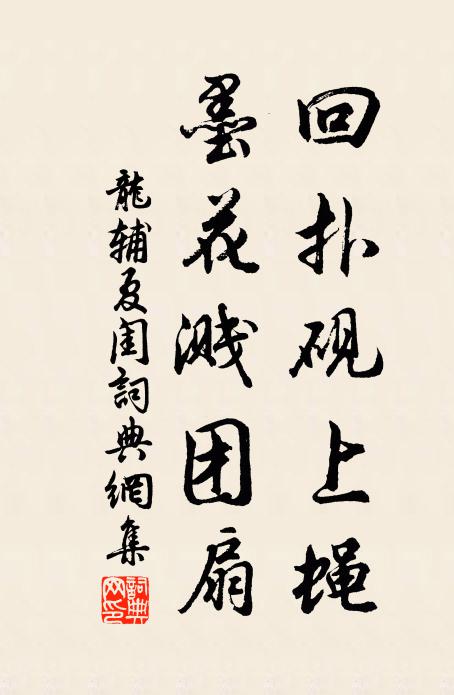 回扑砚上蝇
墨花溅团扇
龍辅夏闺詞典網集
詞典网印